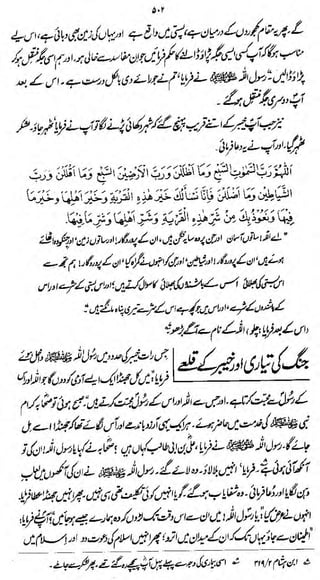 ۵۰۲
گے۔ پھر یہ مقام کھجوروں کے درمیان ہے، پستی میں واقع ہے اور یہاں کی زمین بھی وبائی ہے، اس لیے
مناسب ہوگا کہ آپ کسی ایسی جگہ پڑاؤ ڈالنے کا حکم فرمائیں جو ان مفاسد سے خالی ہو، اور ہم اسی جگہ منتقل ہو کے
پڑاؤ ڈالیں" رسول اللہ ﷺ نے فرمایا، تم نے جو رائے دی بالکل درست ہے۔ اس کے بعد
آپ دوسری جگہ منتقل ہو گئے۔
نیز جب آپ خیبر کے اتنے قریب پہنچ گئے کہ شہر دکھائی پڑنے لگا تو آپ نے فرمایا، ٹھہر جاؤ۔ لشکر
ٹھہر گیا۔ اور آپ نے یہ دعا فرمائی۔
اَللّٰهُمَّ رَبَّ السَّمٰوٰتِ السَّبْعِ وَمَا اَظْلَلْنَ وَرَبَّ الْاَرَضِيْنَ السَّبْعِ وَمَا اَقْلَلْنَ وَرَبَّ
الشَّيَاطِيْنِ وَمَا اَضْلَلْنَ فَاِنَّا نَسْأَلُكَ خَيْرَ هٰذِهِ الْقَرْيَةِ وَخَيْرَ اَهْلِهَا وَخَيْرَ مَا
فِيْهَا وَنَعُوْذُ بِكَ مِنْ شَرِّ هٰذِهِ الْقَرْيَةِ وَشَرِّ اَهْلِهَا وَشَرِّ مَا فِيْهَا۔
"اے اللہ! ساتوں آسمان اور جن پر وہ سایہ فگن ہیں، ان کے پروردگار! اور ساتوں زمین، اور جن کو وہ اٹھائے
ہوئے ہیں، ان کے پروردگار! اور شیاطین، اور جن کو انہوں نے گمراہ کیا، ان کے پروردگار! ہم تجھ سے
اس بستی کی بھلائی، اس کے باشندوں کی بھلائی کا سوال کرتے ہیں؛ اور اس بستی کے شر سے اور اس
کے باشندوں کے شر سے، اور اس میں جو کچھ ہے اس کے شر سے تیری پناہ مانگتے ہیں۔"
(اس کے بعد فرمایا: چلو،) اللہ کے نام سے آگے بڑھو
جنگ کی تیاری اور خیبر کے قلعے
جس رات خیبر کی حدود میں رسول اللہ ﷺ داخل ہوئے
فرمایا: "میں کل جھنڈا ایک ایسے آدمی کو دوں گا جو اللہ اور اس
کے رسول سے محبت کرتا ہے۔ اور جس سے اللہ اور اس کے رسول محبت کرتے ہیں" صبح ہوئی تو صحابہ کرام
کی خدمت میں حاضر ہوئے۔ ہر ایک یہی آرزو باندھے اور آس لگائے تھا کہ جھنڈا اسے مل
جائے گا۔ رسول اللہ ﷺ نے فرمایا، علی بن ابی طالب کہاں ہیں؟ صحابہ نے کہا: یا رسول اللہ! ان کی تو
آنکھ آئی ہوئی ہے، فرمایا، انہیں بلا لاؤ۔ وہ لائے گئے۔ رسول اللہ ﷺ نے ان کی آنکھوں میں لعاب
دہن لگایا اور دعا فرمائی۔ وہ شفا یاب ہو گئے، گویا انہیں کوئی تکلیف تھی ہی نہیں۔ پھر انہیں جھنڈا عطا فرمایا۔
انہوں نے عرض کی: یا رسول اللہ! میں ان سے اس وقت تک لڑوں کہ وہ ہمارے جیسے ہو جائیں" آپ نے فرمایا،
اطمینان سے جاؤ، یہاں تک کہ ان کے میدان میں اترو؛ پھر انہیں اسلام کی دعوت دو، اور اسلام میں
ابن ہشام ۲/۳۲۹ اسی بیماری کی وجہ سے پہلے پہل آپ پیچھے رہ گئے تھے۔ پھر لشکر سے جا ملے۔